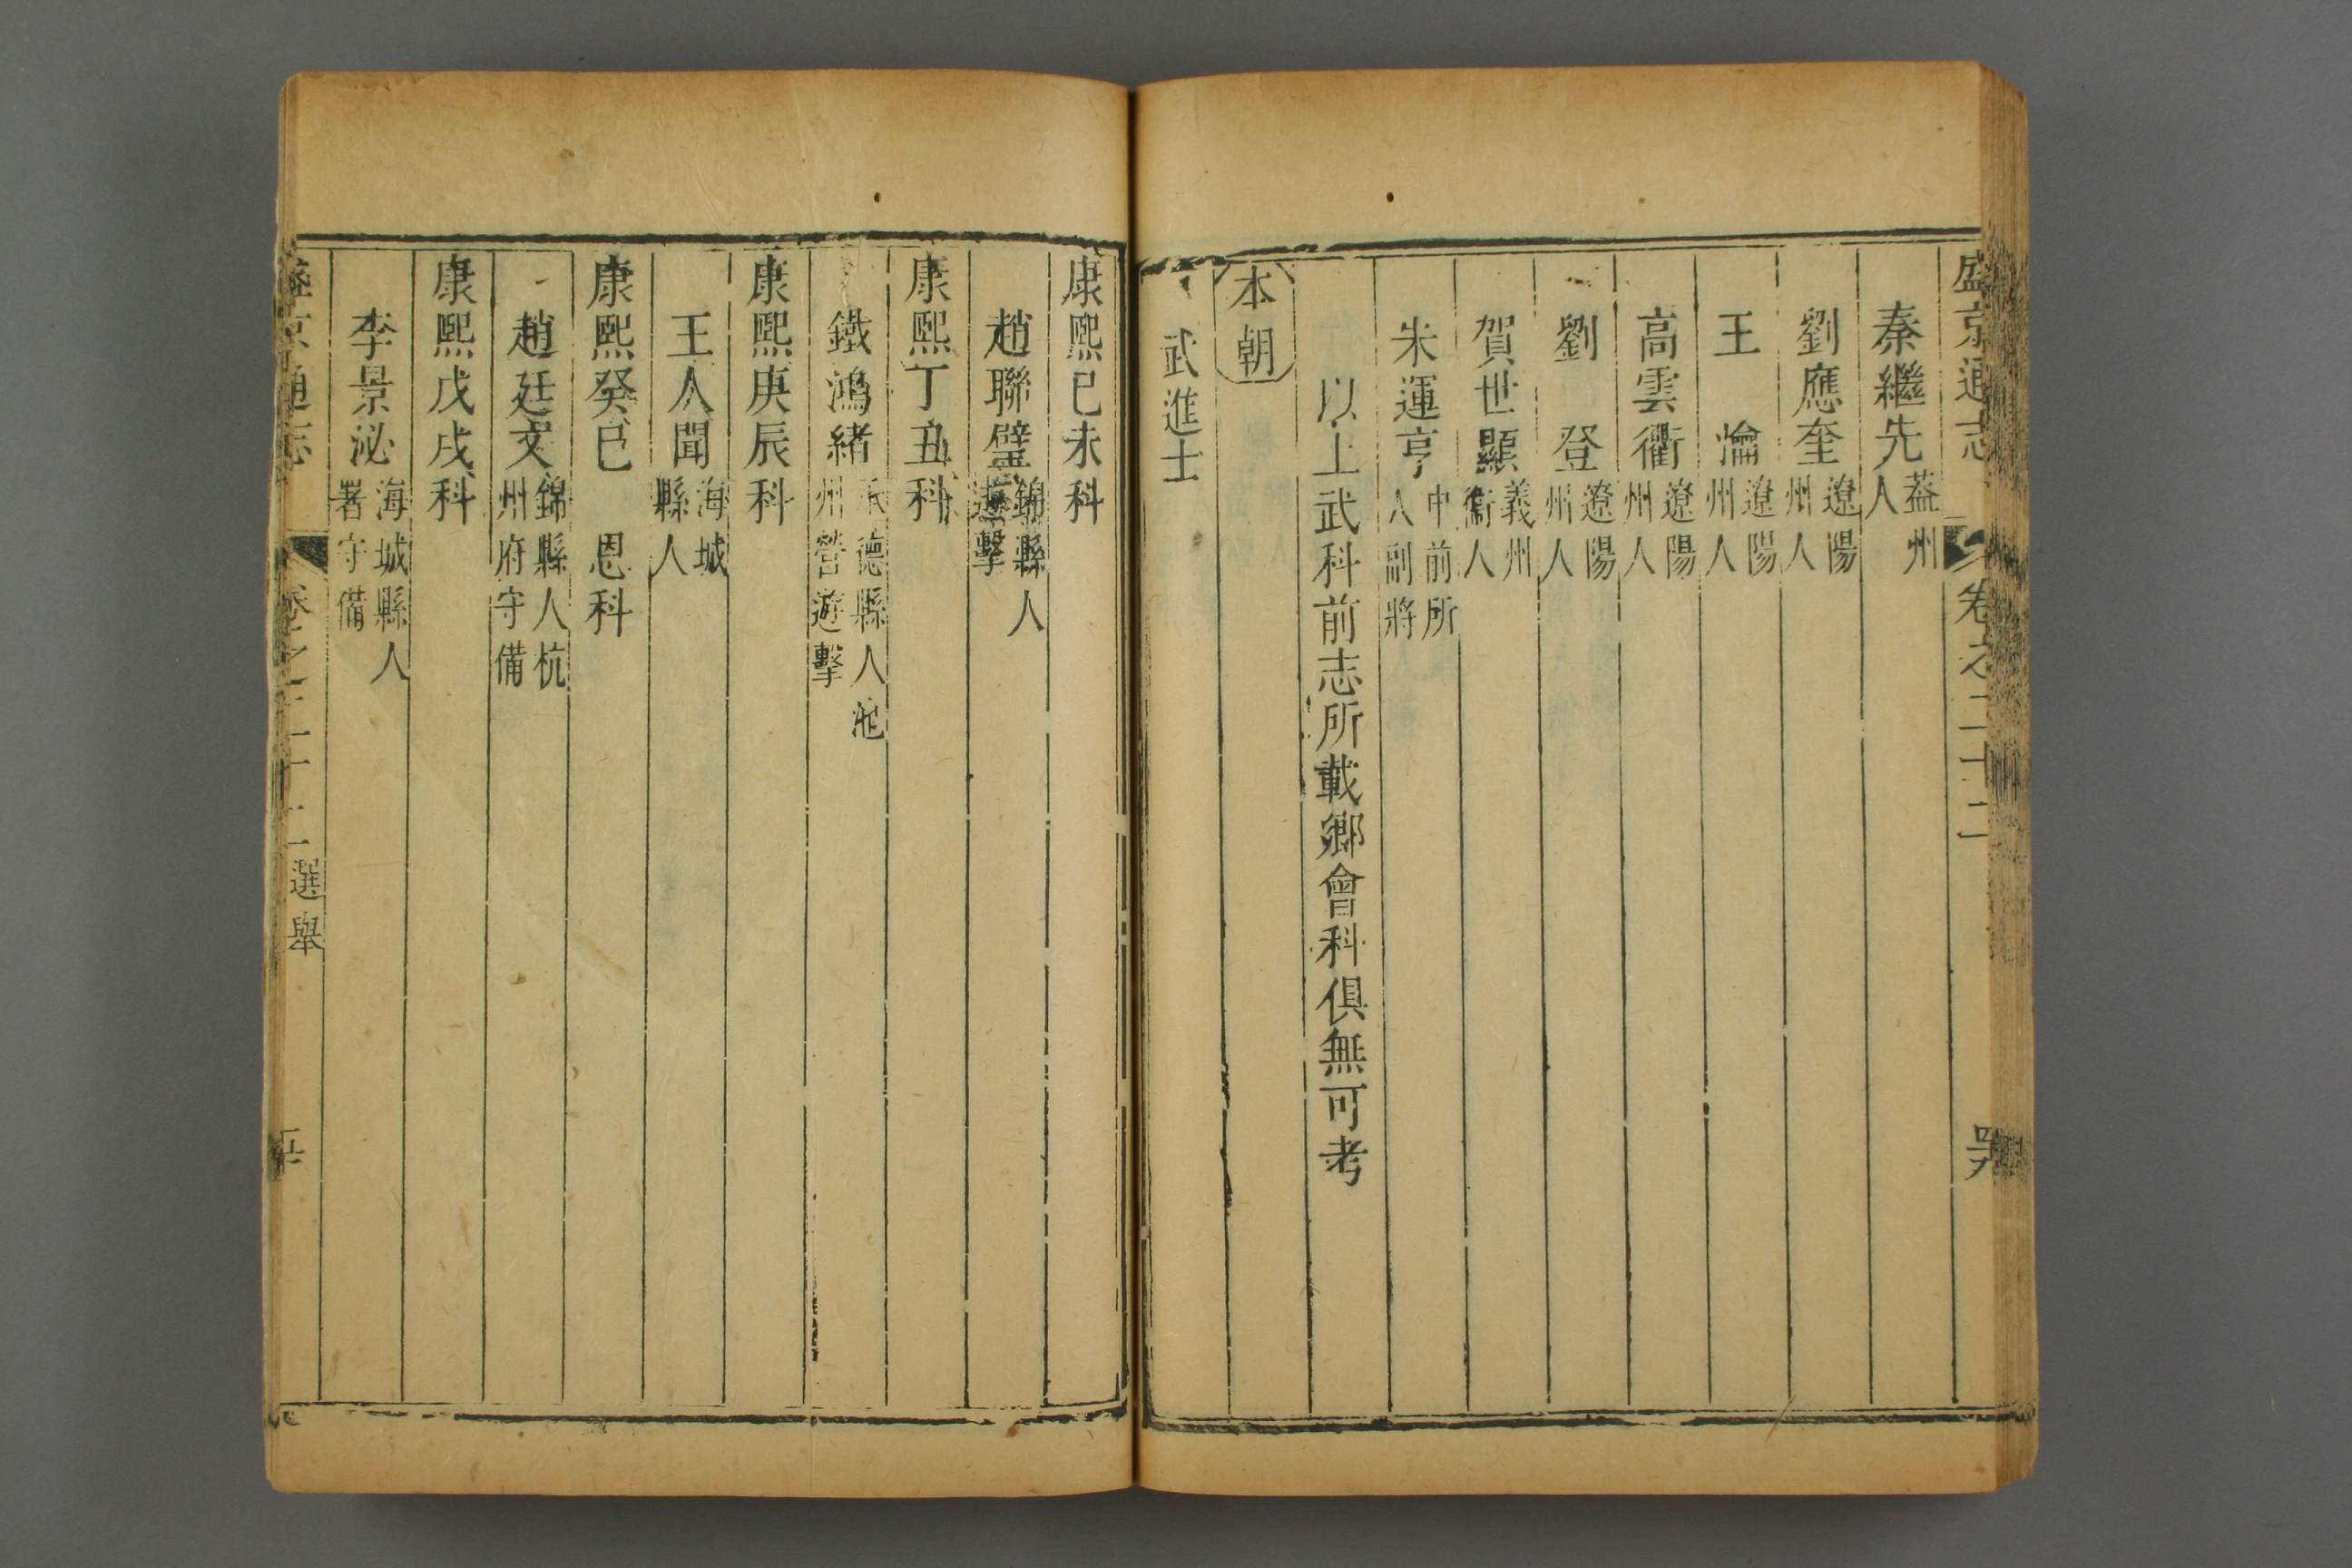 盛京通志 卷之二十二
秦繼先 葢州人
劉應奎 遼陽州人
王 瀹 遼陽州人
高雲衢 遼陽州人
劉 登 遼陽州人
賀世顯 義州衞人
朱運亨 中前所人副將
以上武科前志所載鄉會科俱無可考
本朝
武進士
康熙己未科
趙聯璧 錦縣人遊擊
康熙丁丑科
鐵鴻緒 承德縣人沱州營遊擊
康熙庚辰科
王人聞 海城縣人
康熙癸巳 恩科
趙廷文 錦縣人杭州府守備
康熙戊戌科
李景泌 海城縣人署守備
盛京通志 卷之二十二 選舉